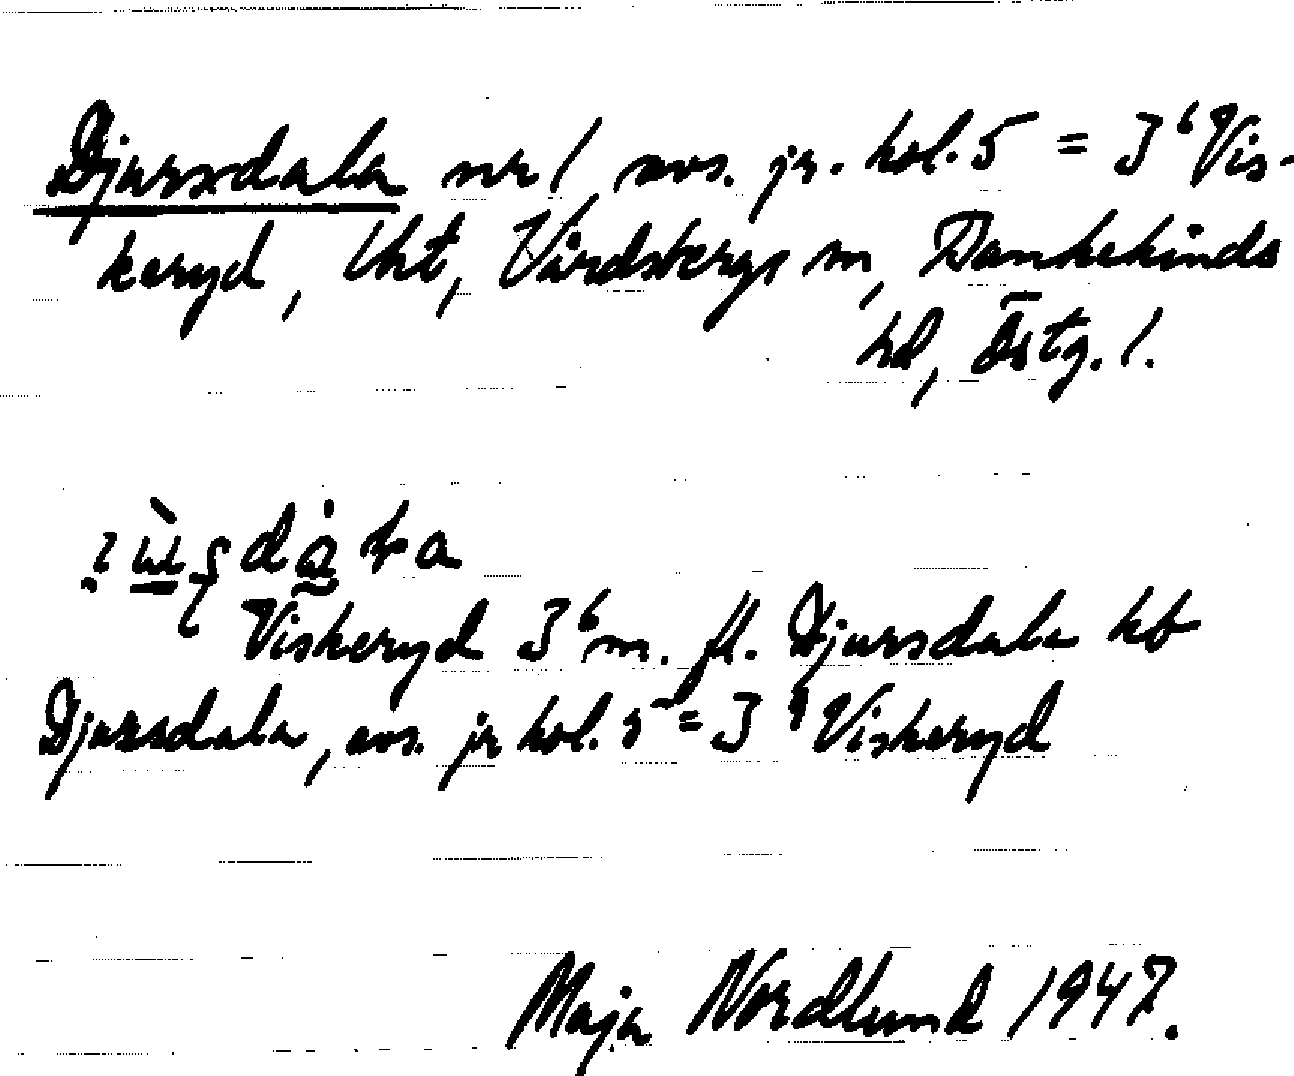 Djursdala nr 1, avs. jr. kol. 5 = 3⁶ Vis-
keryd, lht, Vårdsbergs sn, Bankekinds
hd, Östg. l.
Viskeryd 3⁶ m. fl. Djursdala kb
Djursdala, avs. jr kol. 5 = 3 Viskeryd
Maja Nordlund 1947.